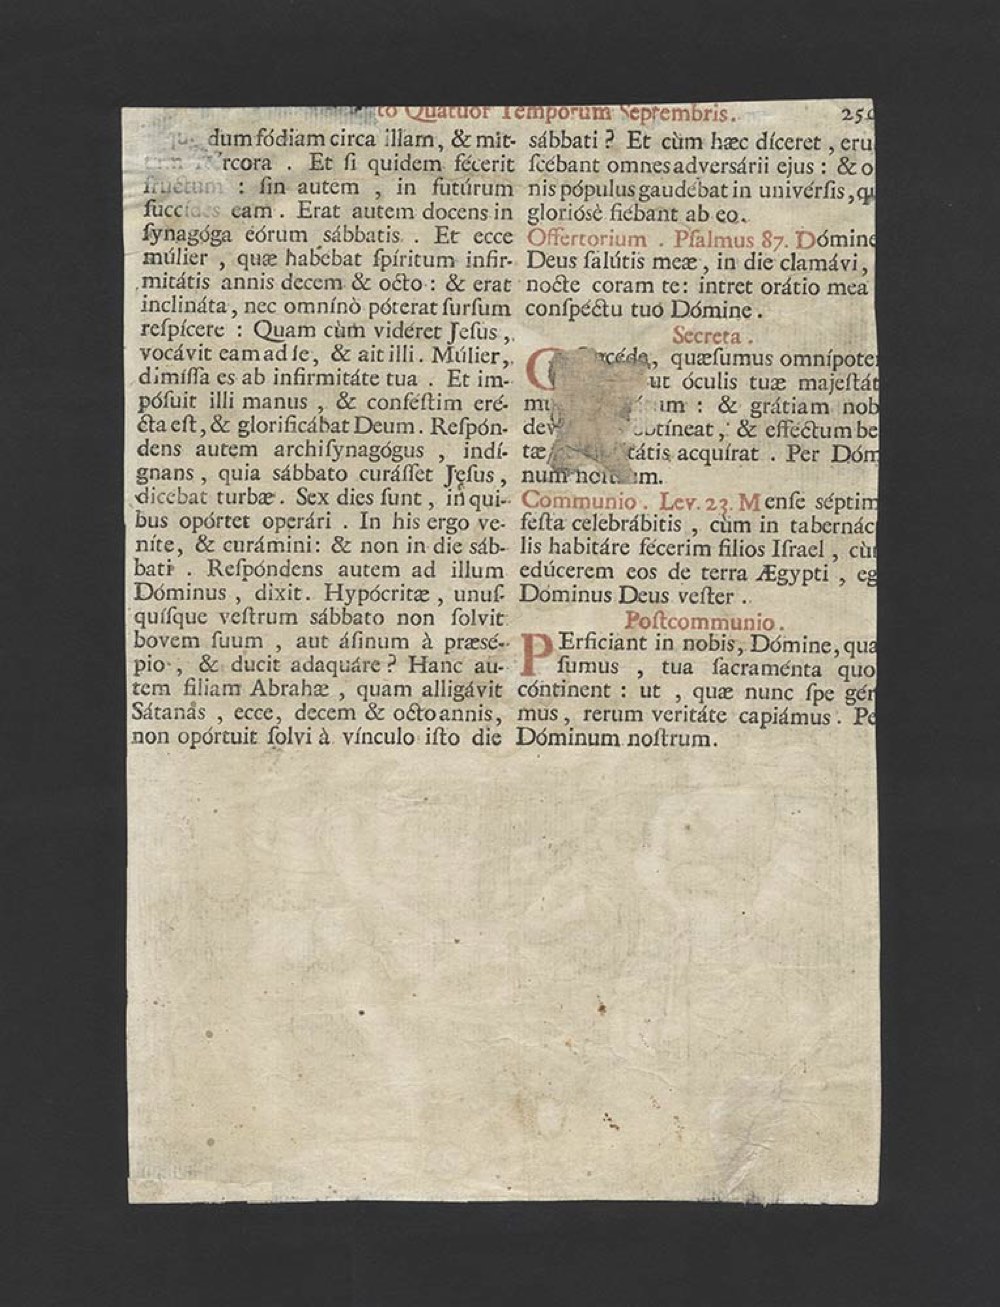 to Quatuor Temporum Septembris. 25
dum fódiam circa illam, & mit-
rcora . Et ſi quidem fécerit
fructum : ſin autem , in futúrum
ſuccides eam . Erat autem docens in
ſynagóga eórum ſábbatis . Et ecce
múlier , quæ habébat ſpíritum infir-
mitátis annis decem & octo : & erat
inclináta , nec omnínò póterat ſurſum
reſpícere : Quam cùm vidéret Jeſus ,
vocávit eam ad ſe , & ait illi . Múlier ,
dimíſſa es ab infirmitáte tua . Et im-
póſuit illi manus , & conféſtim eré-
cta eſt , & glorificábat Deum . Reſpón-
dens autem archiſynagógus , indí-
gnans , quia ſábbato curáſſet Jeſus ,
dicebat turbæ . Sex dies ſunt , in qui-
bus opórtet operári . In his ergo ve-
níte , & curámini : & non in die ſáb-
bati . Reſpóndens autem ad illum
Dóminus , dixit . Hypócritæ , unuſ-
quíſque veſtrum ſábbato non ſolvit
bovem ſuum , aut áſinum à præsé-
pio , & ducit adaquáre ? Hanc au-
tem filiam Abrahæ , quam alligávit
Sátanás , ecce , decem & octo annis ,
non opórtuit ſolvi à vínculo iſto die
sábbati ? Et cùm hæc díceret , eru
ſcébant omnes adversárii ejus : & o
nis pópulus gaudébat in univérſis , qu
glorióſè fiébant ab eo .
Offertorium . Pſalmus 87. Dómine
Deus ſalútis meæ , in die clamávi ,
nocte coram te : intret orátio mea
conſpéctu tuo Dómine .
Secreta .
C céde , quæſumus omnípote
ut óculis tuæ majeſtát
mu um : & grátiam nob
dev obtíneat , & effectum be
tæ tátis acquírat . Per Dóm
num noſtrum.
Communio . Lev. 23. Menſe séptim
feſta celebrábitis , cùm in tabernác
lis habitáre fécerim filios Iſrael , cù
edúcerem eos de terra Ægypti , eg
Dóminus Deus veſter .
Poſtcommunio .
PErficiant in nobis , Dómine , quæ
ſumus , tua ſacraménta quo
cóntinent : ut , quæ nunc ſpe gér
mus , rerum veritáte capiámus . Pe
Dóminum noſtrum.